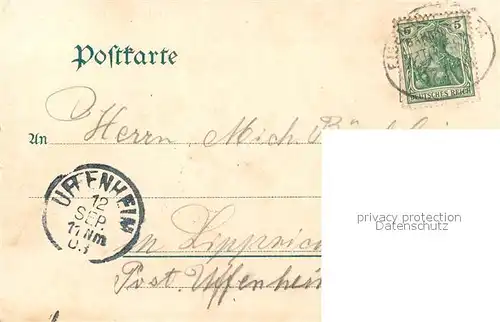 Postkarte
5 5
DEUTSCHES REICH
An Herrn Mich
UFFENHEIM
12
SEP.
11 Nm
03
privacy protection
Datenschutz
in Lippric
Post. Uffenheim